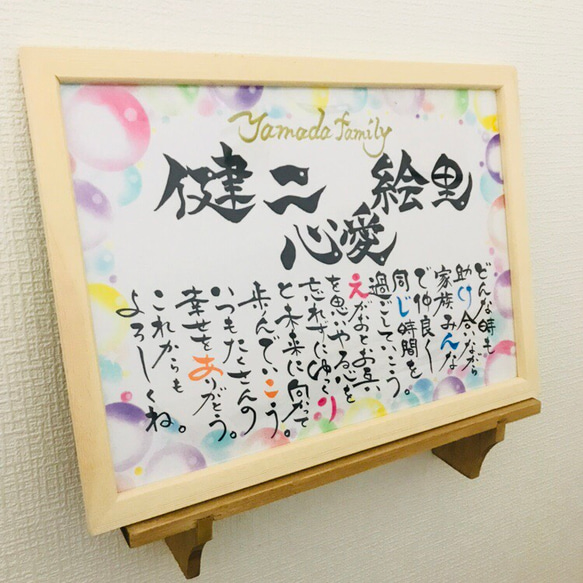 Yamada family
健二 絵里
心愛
どんな時も
助け合いながら
家族みんな
で仲良く
同じ時間を
過ごしていこう。
えがおとお互い
を思いやる心を
忘れずにゆっくり
と未来に向かって
歩んでいこう。
いつもたくさんの
幸せをありがとう。
これからも
よろしくね。